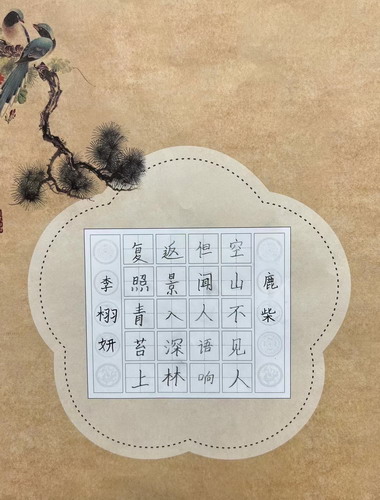 鹿柴
空山不见人
但闻人语响
返景入深林
复照青苔上
李栩妍